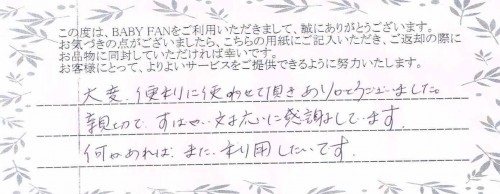 この度は、BABY FANをご利用いただきまして、誠にありがとうございます。
お気づきの点がございましたら、こちらの用紙にご記入いただき、ご返却の際に
お品物に同封していただければ幸いです。
お客様にとって、よりよいサービスをご提供できるように努力いたします。
大変、便利に使わせて頂きありがとうございました。
親切で、すばやい対応に感謝しています。
何かあれば、また、利用したいです。